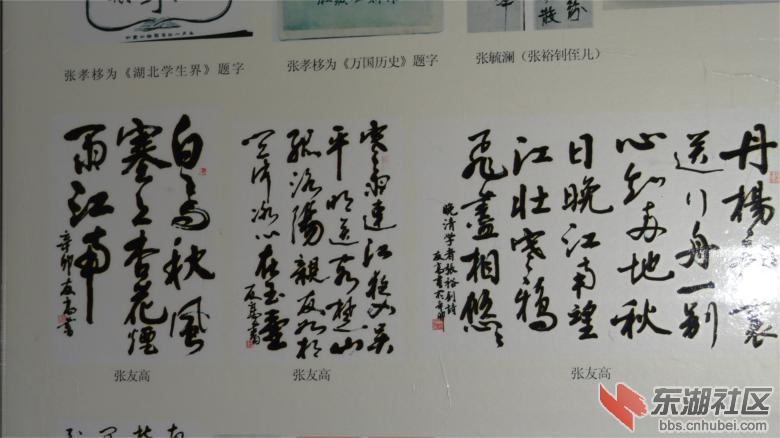 张孝栘为《湖北学生界》题字
张孝栘为《万国历史》题字
张毓澜（张裕钊侄儿）
白马秋风
塞上杏花烟
雨江南
辛卯友高书
张友高
寒雨连江夜入吴
平明送客楚山
孤洛阳亲友如相
问冰心在玉壶
友高书
张友高
丹杨
送行舟一别
心知两地秋
日晚江南望
江北寒鸦
飞尽相悠悠
晚清学者张裕钊诗
张友高
东湖社区
bbs.cnhubei.com